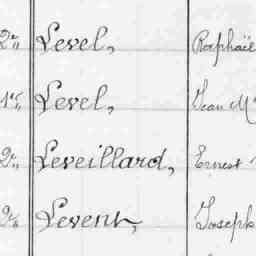 2e Level, Raphaël
1er Level, Jean M
2e Leveillard, Ernest
2e Levent, Joseph